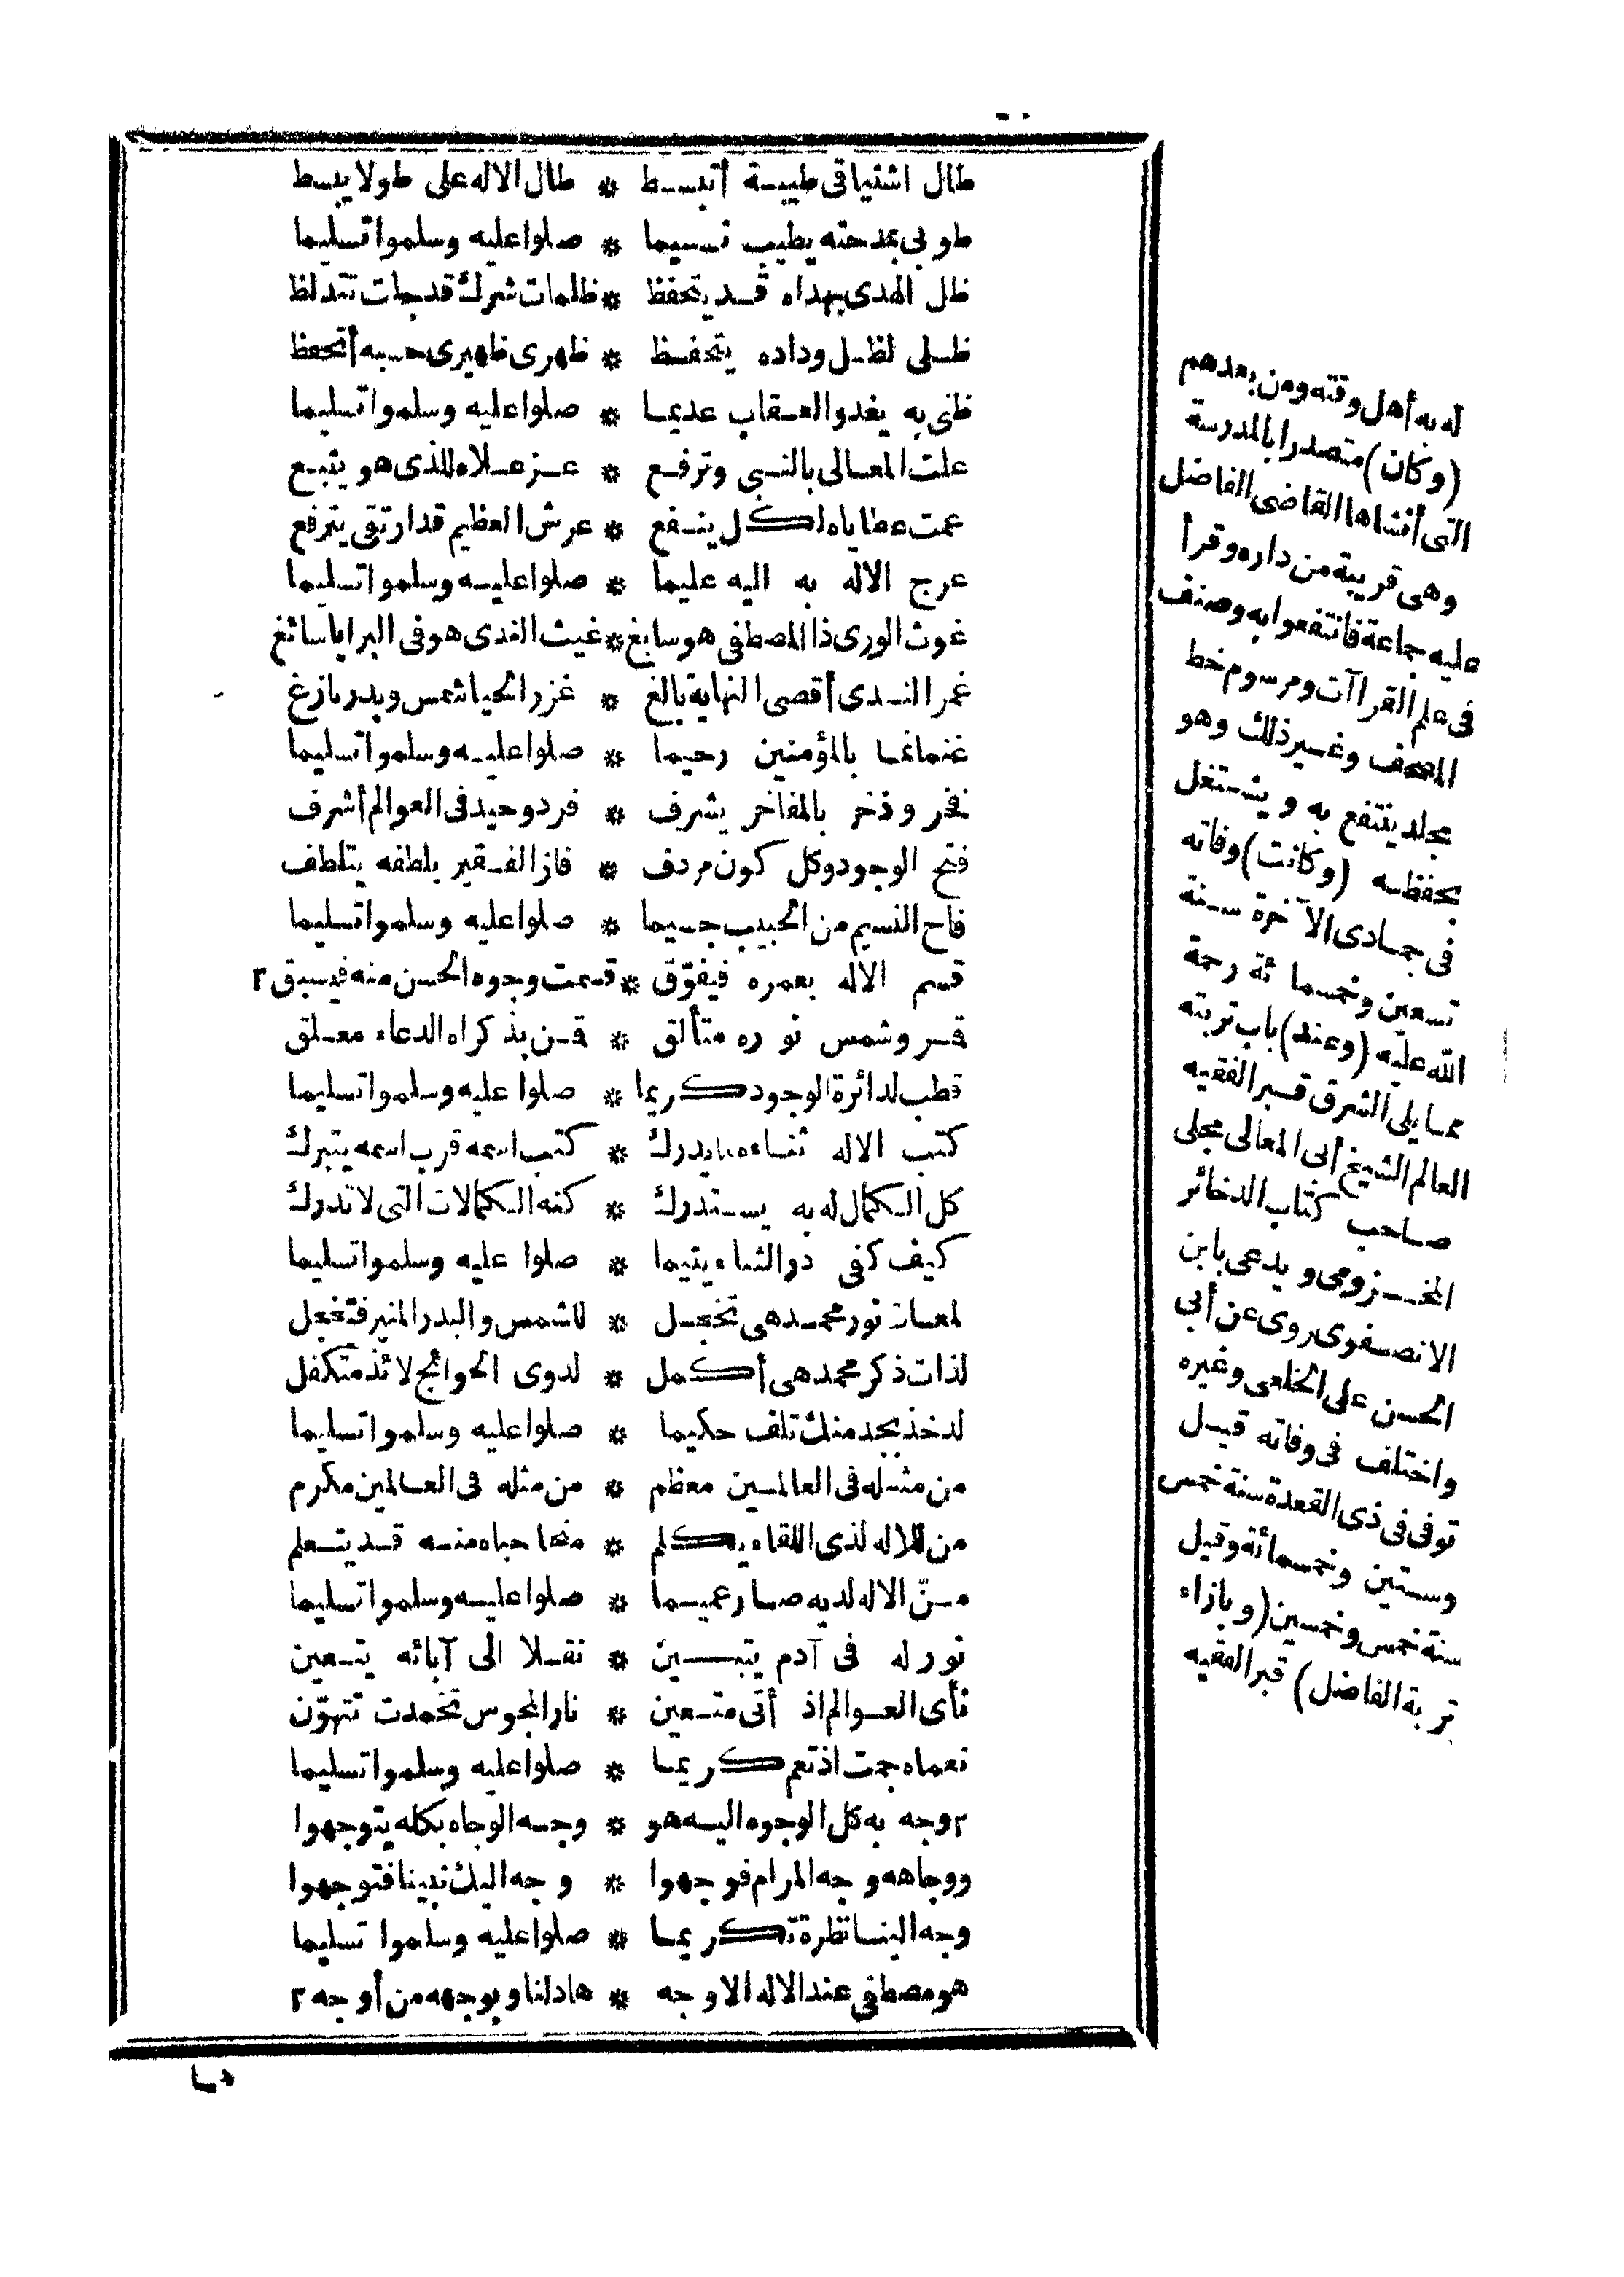 طال اشتياقى طيبة أتبسط * طال الاله على طولا يبسط
طوبى بمدحته يطيب نسيما * صلوا عليه وسلموا تسليما
ظل الهدى بهداه قد يتحفظ * ظلمات شرك قد جات تتدلظ
ظلى لظل وداده يتحفظ * ظهرى ظهيرى حبه أتحفظ
ظنى به يغدو العقاب عديما * صلوا عليه وسلموا تسليما
علت المعالى بالنبى وترفع * عز علاه للذى هو يتبع
عمت عطاياه لكل ينفع * عرش العظيم قد ارتقى يترفع
عرج الاله به اليه عليما * صلوا عليه وسلموا تسليما
غوث الورى ذا المصطفى هو سابغ * غيث الندى هو فى البرايا سائغ
غمر الندى أقصى النهاية بالغ * غزر الحيا شمس وبدر بازغ
غنمانما بالمؤمنين رحيما * صلوا عليه وسلموا تسليما
فخر وذخر بالمفاخر يشرف * فرد وحيد فى العوالم أشرف
فتح الوجود وكل كون مردف * فاز الفقير بلطفه يتلطف
فاح النسيم من الحبيب جسيما * صلوا عليه وسلموا تسليما
قسم الاله بعمره فيفوّق * قسمت وجوه الحسن منه فيسبق ٢
قمر وشمس نوره متألق * قمن بذكراه الدعاء معلق
قطب لدائرة الوجود كريما * صلوا عليه وسلموا تسليما
كتب الاله ثناءه ما يدرك * كتب اسمه قرب اسمه يتبرك
كل الكمال له به يستدرك * كنه الكمالات التى لا تدرك
كيف كفى در الثناء يتيما * صلوا عليه وسلموا تسليما
لمعان نور محمد هى تخجل * للشمس والبدر المنير فتخجل
لذات ذكر محمد هى أكمل * لذوى الحوائج لائذ متكفل
لذ خذ بجد منك تلف حكيما * صلوا عليه وسلموا تسليما
من مثله فى العالمين معظم * من مثله فى العالمين مكرم
من للاله لذى اللقاء يكلم * منحا حباه منه قد يتعلم
منّ الاله لديه صار عميما * صلوا عليه وسلموا تسليما
نور له فى آدم يتبين * نقلا الى آبائه يتعين
نأى العوالم اذ أتى متعين * نار المجوس تخمدت تتهوّن
نعماه جمت اذ تعم كريما * صلوا عليه وسلموا تسليما
٢ وجه به كل الوجوه اليه هو * وجه الوجاه بكله يتوجهوا
ووجاهه وجه المرام فوجهوا * وجه اليك نبينا فتوجهوا
وجه الينا نظرة تكريما * صلوا عليه وسلموا تسليما
هو مصطفى عند الاله الاوجه * هاد لنا وبوجهه من أوجه ٢
له به أهل وقته ومن بعدهم
(وكان) متصدرا بالمدرسة
التى أنشاها القاضى الفاضل
وهى قريبة من داره وقرأ
عليه جماعة فانتفعوا به وصنف
فى علم القراآت ومرسوم خط
المصحف وغير ذلك وهو
مجلد ينتفع به ويشتغل
بحفظه (وكانت) وفاته
فى جمادى الآخرة سنة
تسعين وخمسمائة رحمة
الله عليه (وعند) باب تربته
مما يلى الشرق قبر الفقيه
العالم الشيخ أبى المعالى مجلى
صاحب كتاب الذخائر
المخزومى ويدعى بابن
الانصفوى روى عن أبى
الحسن على الخلعى وغيره
واختلف فى وفاته قيل
توفى فى ذى القعدة سنة خمس
وستين وخمسمائة وقيل
سنة خمس وخمسين (وبازاء
تربة الفاضل) قبر الفقيه